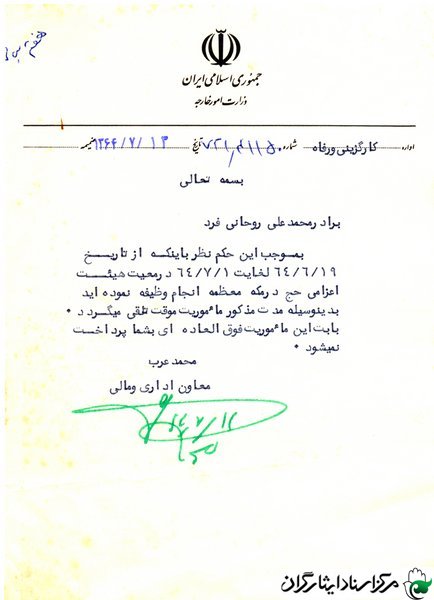 جمهوری اسلامی ایران
وزارت امور خارجه
اداره کارگزینی ورفاه شماره ۷۲۱/۴۱۱۵۰ تاریخ ۱۳۶۴/۷/۱۳ ضمیمه
بسمه تعالی
برادر محمدعلی روحانی فرد
بموجب این حکم نظر باینکه از تاریخ
۶۴/۶/۱۹ لغایت ۶۴/۷/۱ در معیت هیئت
اعزامی حج در مکه معظمه انجام وظیفه نموده اید
بدینوسیله مدت مذکور مأموریت موقت تلقی میگردد ۰
بابت این مأموریت فوق العاده ای بشما پرداخت
نمیشود ۰
محمد عرب
معاون اداری ومالی
مرکز اسناد ایثارگران